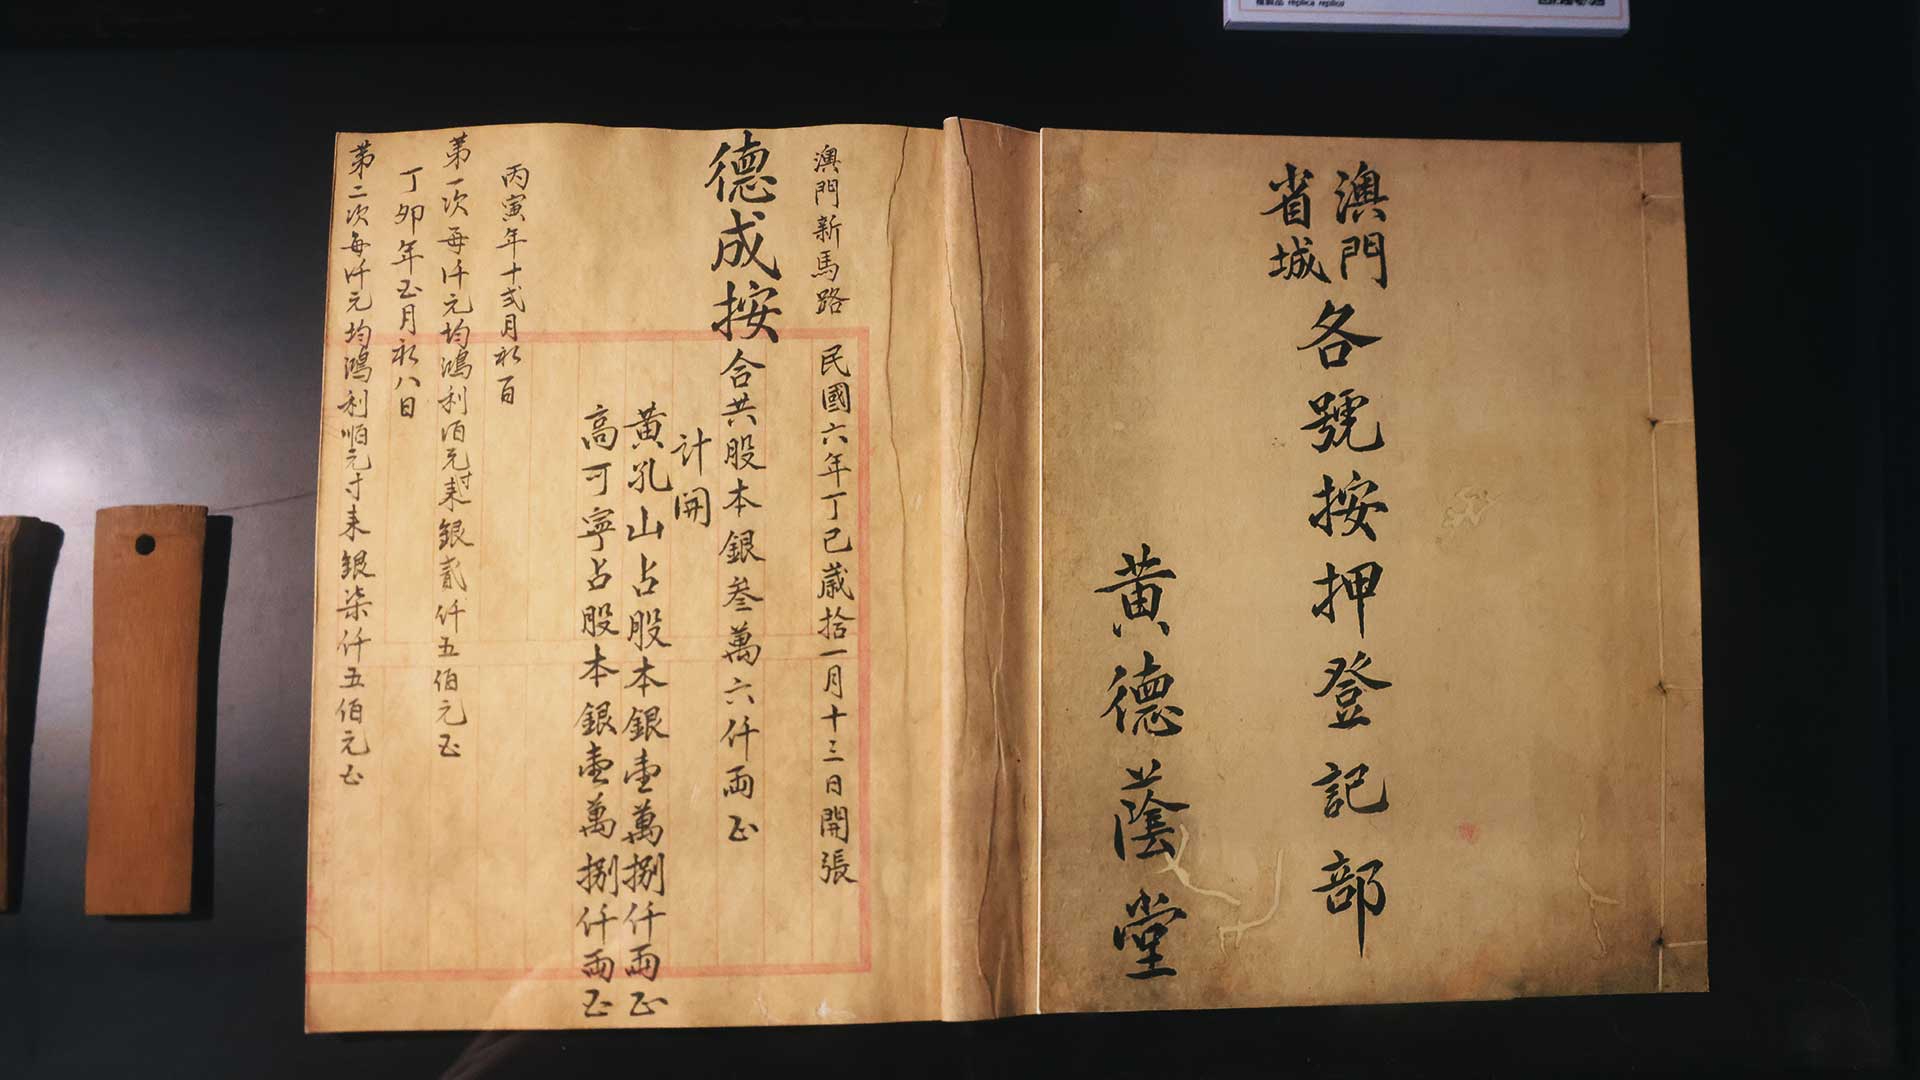 複製品 replica replica
澳門
省城
各號按押登記部
黃德蔭堂
澳門新馬路 民國六年丁巳歲拾一月十三日開張
德成按合共股本銀叁萬六仟両正
計開
黃孔山占股本銀壹萬捌仟両正
高可寧占股本銀壹萬捌仟両正
丙寅年十弍月初一日
第一次每仟元均鴻利 銀貳仟五伯元正
丁卯年五月初八日
第二次每仟元均鴻利 銀柒仟五伯元正